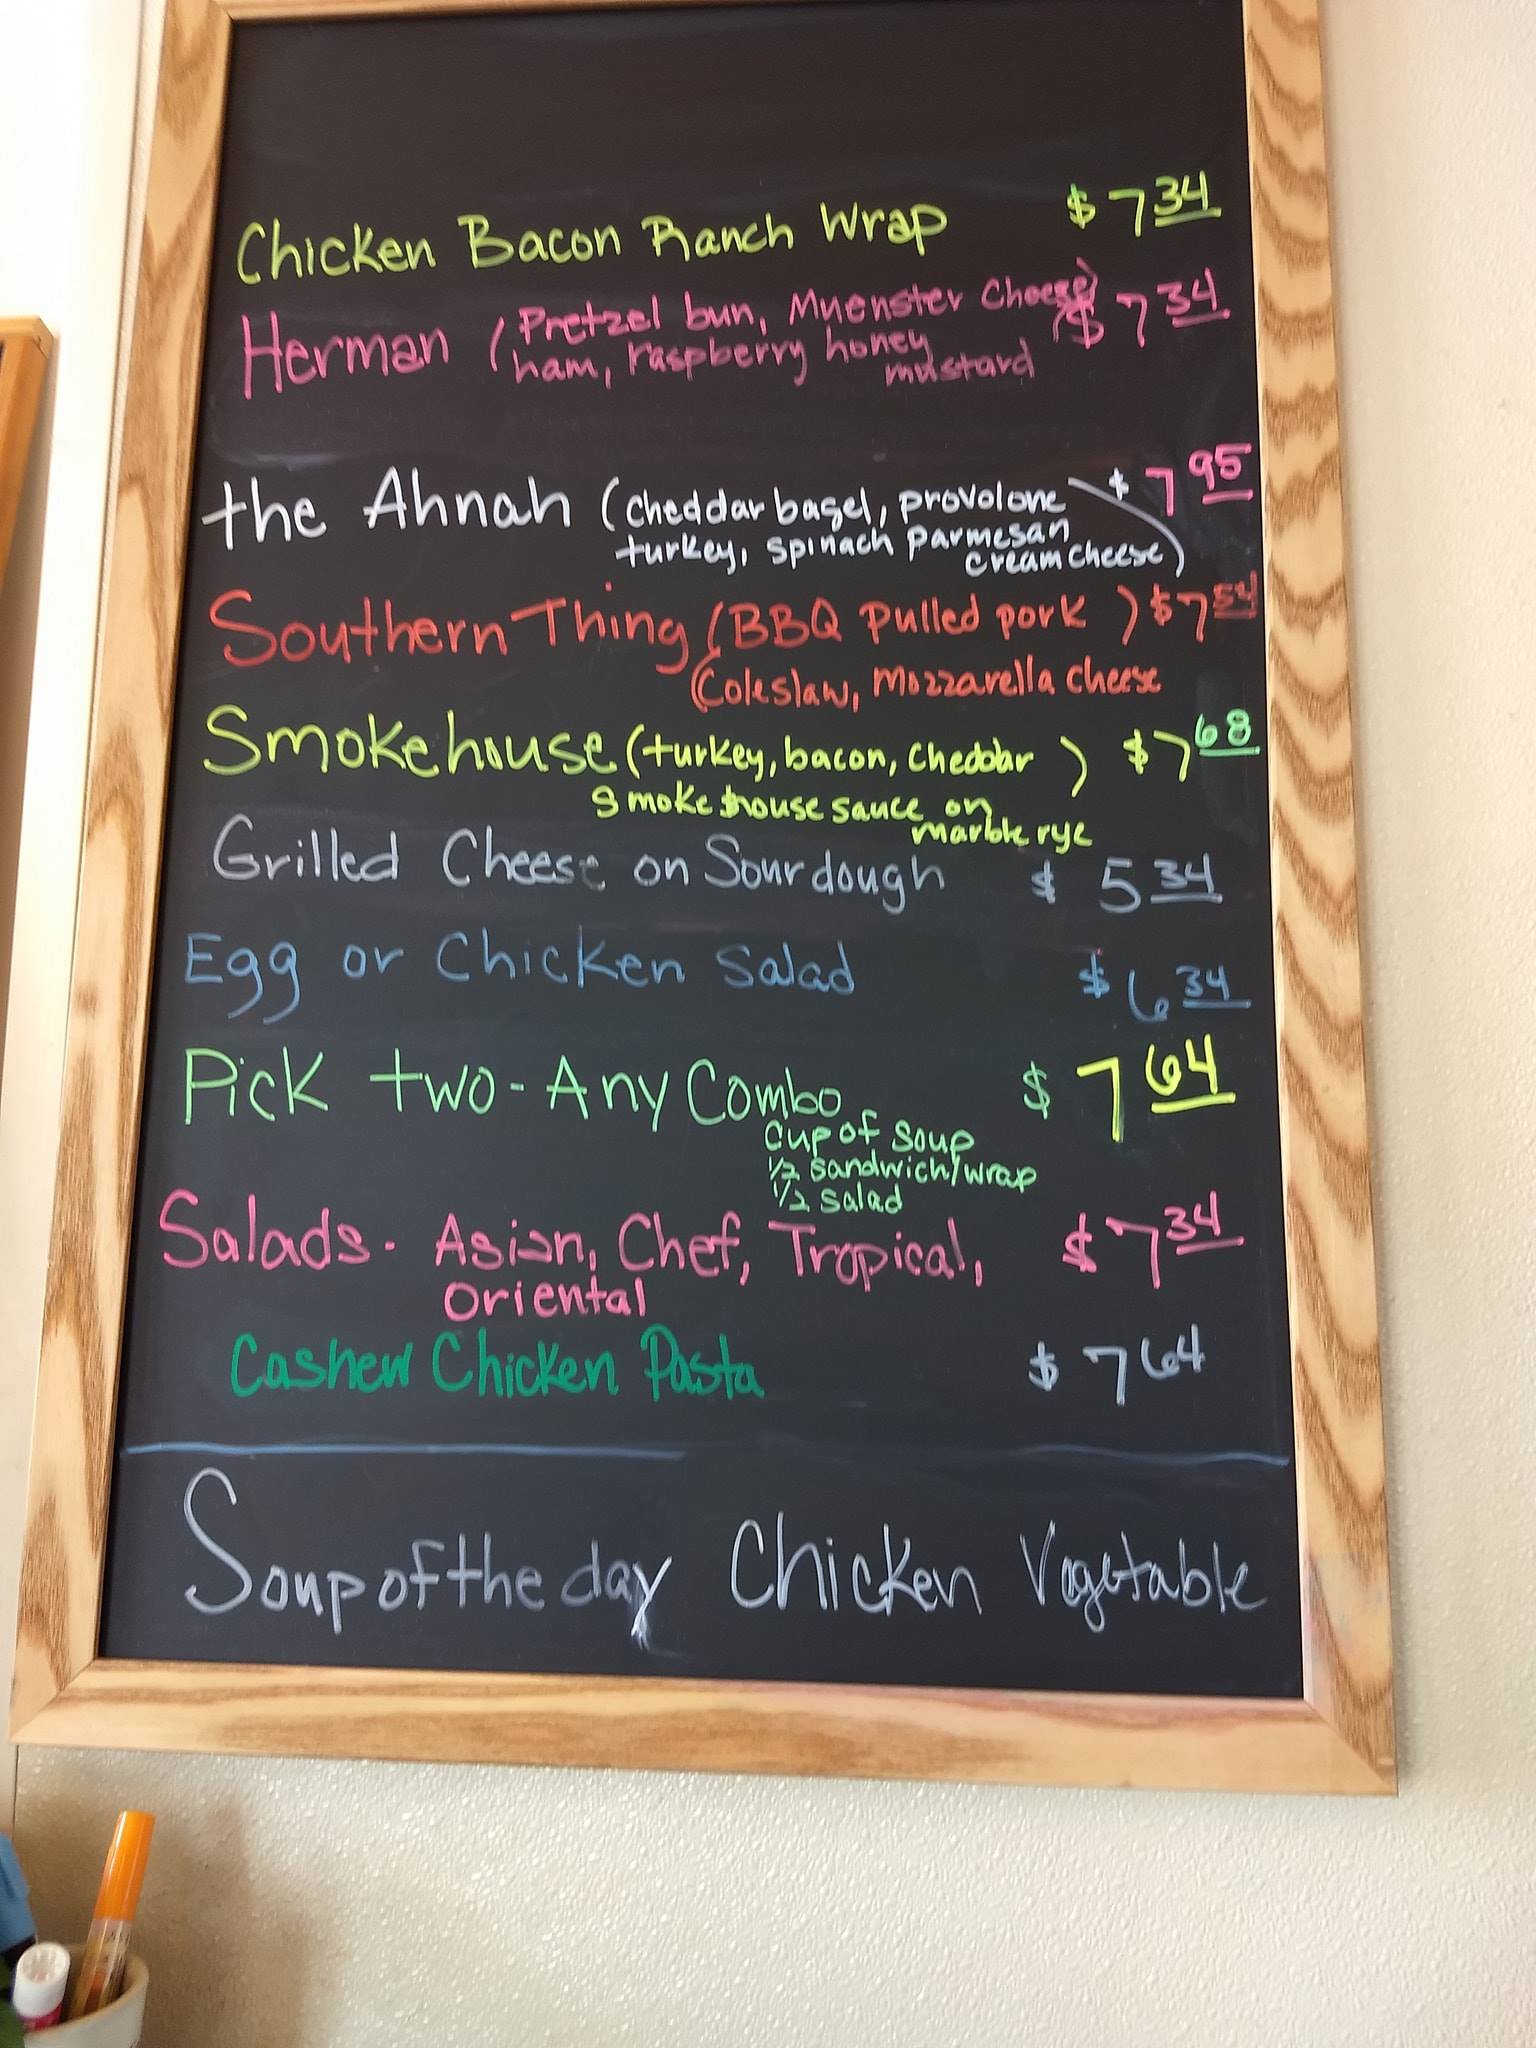 Chicken Bacon Ranch Wrap $ 7 34
Herman (Pretzel bun, Muenster Cheese) $ 7 34
ham, raspberry honey
mustard
the Ahnah (cheddar bagel, provolone $ 7 95
turkey, spinach parmesan
cream cheese)
Southern Thing (BBQ Pulled pork ) $ 7 54
(Coleslaw, Mozzarella cheese
Smokehouse (turkey, bacon, cheddar ) $ 7 68
Smokehouse sauce on
marble rye
Grilled Cheese on Sourdough $ 5 34
Egg or Chicken Salad $ 6 34
Pick two - Any Combo $ 7 64
Cup of soup
1/2 sandwich/wrap
1/2 salad
Salads - Asian, Chef, Tropical, $ 7 34
Oriental
Cashew Chicken Pasta $ 7 64
Soup of the day Chicken Vegetable